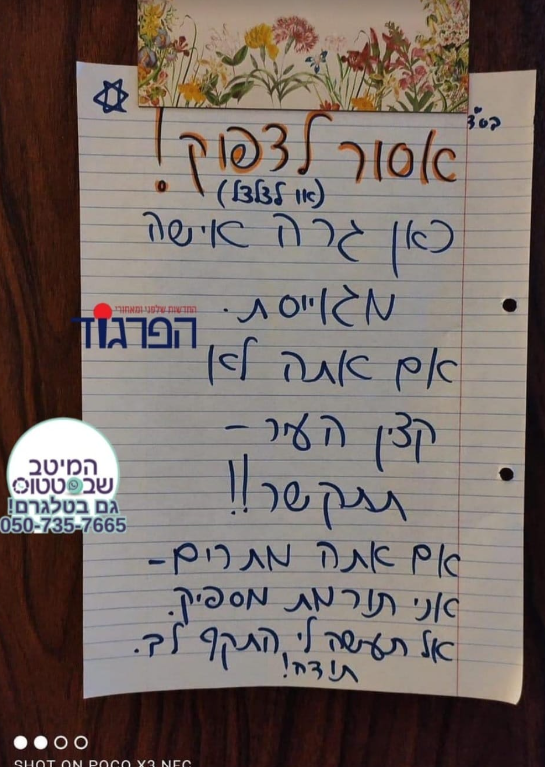 בס"ד
אסור לדפוק!
(או לצלצל)
כאן גרה אישה
מגוייסת.
אם אתה לא
קצין העיר -
תתקשר!!
אם אתה מתרים -
אני תורמת מספיק.
אל תעשה לי התקף לב.
תודה!
החדשות שלפני ומאחורי
הפרגוד
המיטב
שבסטטוס
גם בטלגרם!
050-735-7665
SHOT ON POCO X3 NFC